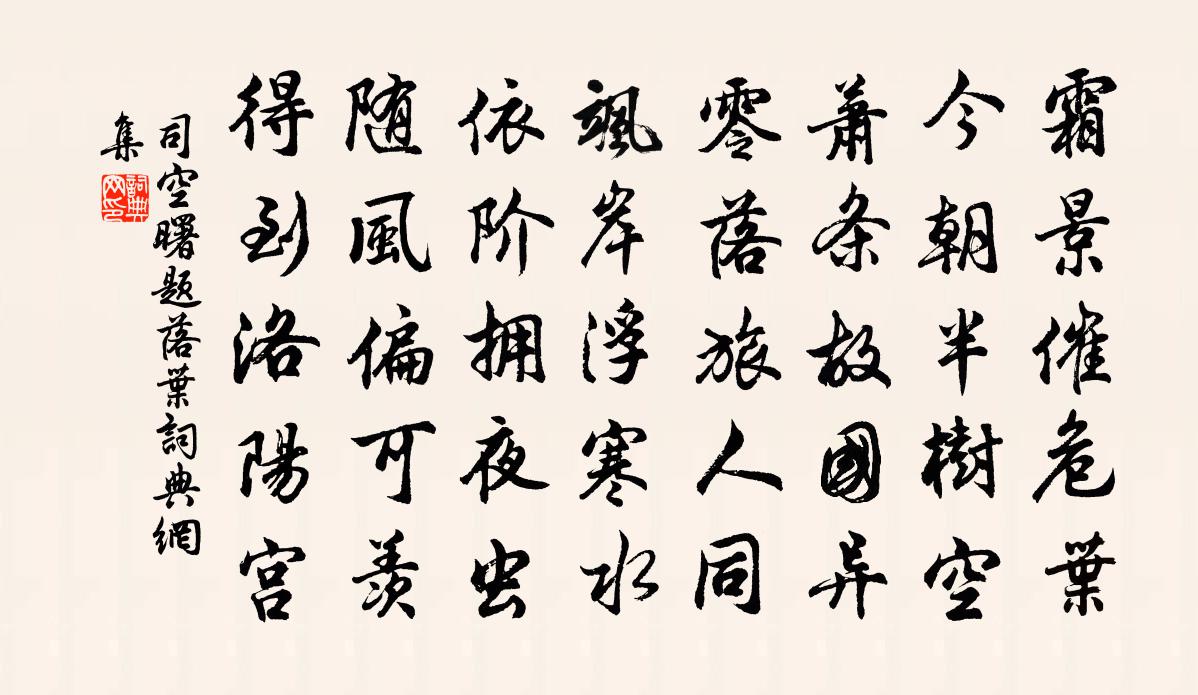 霜景催危葉
今朝半樹空
蕭条故國异
零落旅人同
颯岸浮寒水
依阶拥夜虫
随風偏可羨
得到洛陽宫
司空曙题落葉詞典網
集
詞典
网印